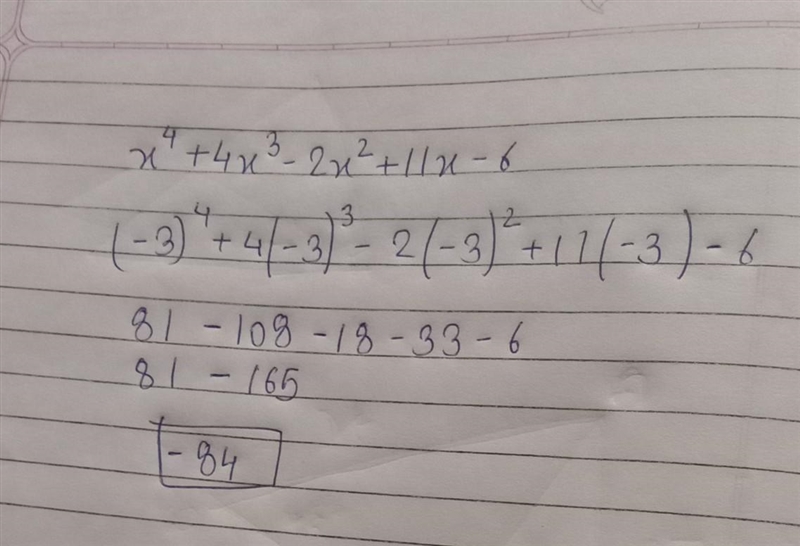 x⁴ + 4x³ - 2x² + 11x - 6
(-3)⁴ + 4(-3)³ - 2(-3)² + 11(-3) - 6
81 - 108 - 18 - 33 - 6
81 - 165
- 84